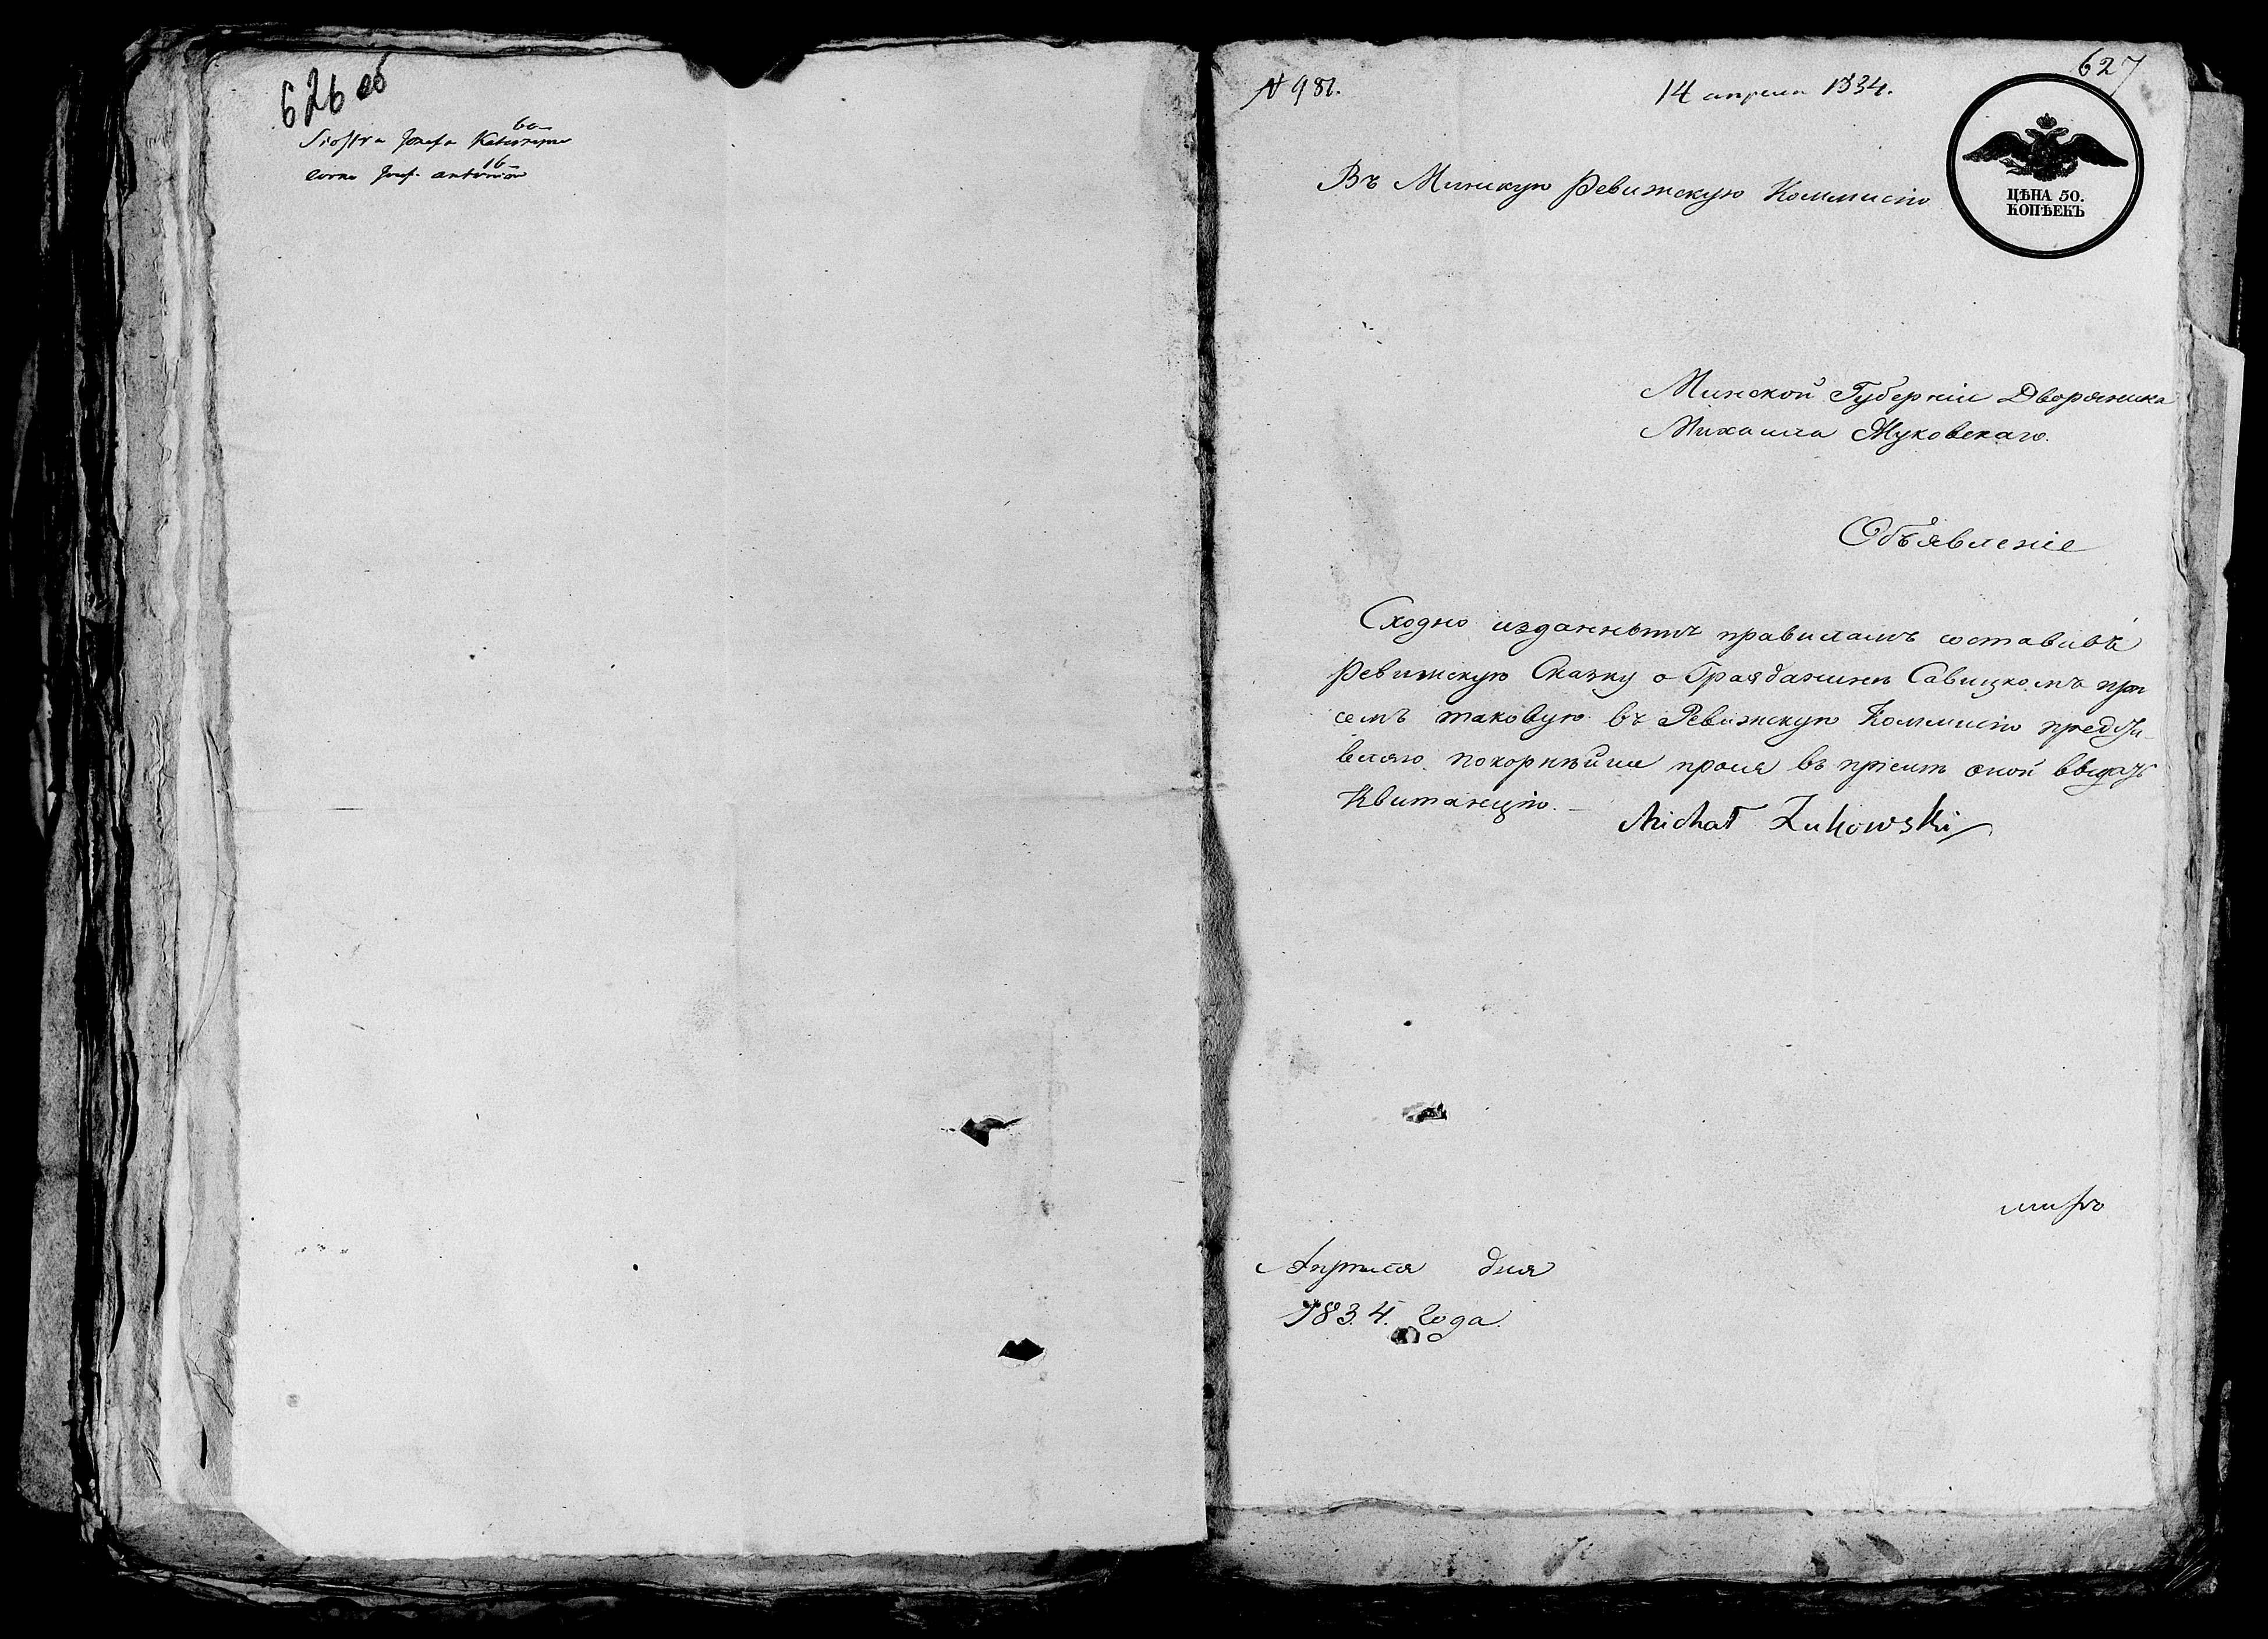 626 об
60
Siostra Jozefa Katarzyna
16
corka Jozef. antonina
627
№ 981. 14 апреля 1834.
ЦѢНА 50.
КОПѢЕКЪ
Въ Минскую Ревижскую Коммисію
Минской Губерніи Дворянина
Михаила Жуковскаго.
Объявленіе
Сходно изданнымъ правиламъ составивъ
Ревижскую Сказку о Гражданинѣ Савицкомъ при
семъ таковую въ Ревижскую Коммисію предста-
вляю покорнѣйше прося въ пріемѣ оной выдать
Квитанцію. —
Michał Żukowski
Апрѣля дня
1834. года.